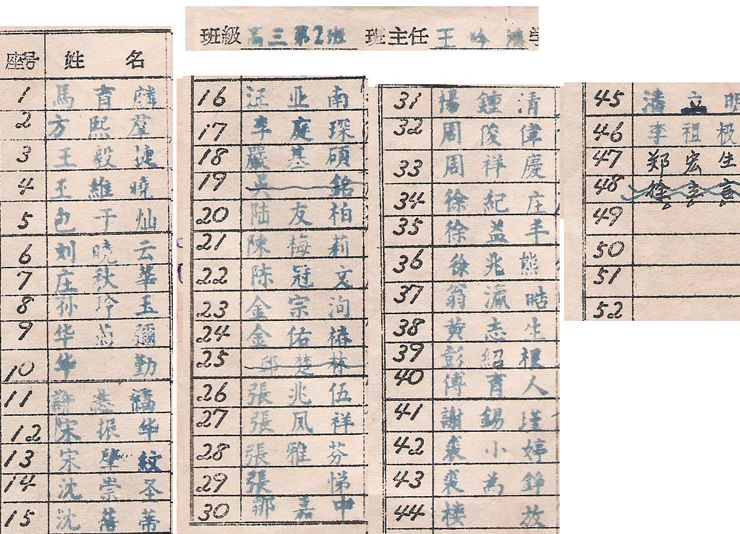 班級 高三第2班 班主任 王吟
座号 姓名
1 馬育麟
2 方熙羣
3 王毅捷
4 王維曉
5 包于灿
6 刘曉云
7 庄秋華
8 孙玲玉
9 华菊彌
10 华勤
11 謝福
12 宋振华
13 宋肇紋
14 沈崇圣
15 沈蒂
16 汪亚南
17 李庭琛
18 嚴基碩
19 吴銘
20 陆友柏
21 陳梅莉
22 陈冠文
23 金宗洵
24 金佑椿
25 邱楚林
26 張兆伍
27 張凤祥
28 張雅芬
29 張悌
30 鄒嘉中
31 楊鍾清
32 周俊偉
33 周祥慶
34 徐紀庄
35 徐益丰
36 徐兆熊
37 翁瀛晧
38 黄志生
39 彭紹裡
40 傅育人
41 謝錫瑾
42 裘小婷
43 裘為錚
44 楼放
45 潘立明
46 李祖极
47 郑宏生
48 徐
49
50
51
52